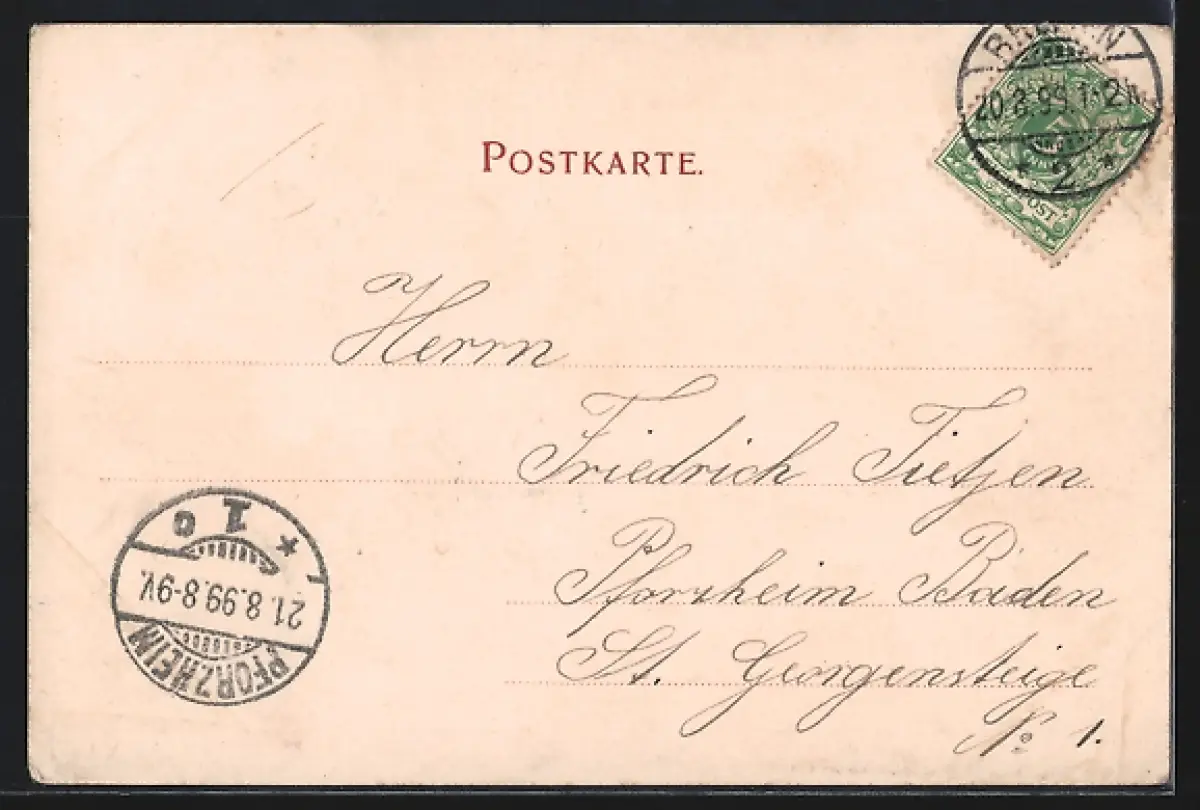 BREMEN
20.8.99.1-2N
* 2 *
POST
POSTKARTE.
Herrn
Friedrich Tietjen
Pforzheim Baden
St. Georgensteige
No 1.
PFORZHEIM
21.8.99.8-9V.
* 1 c